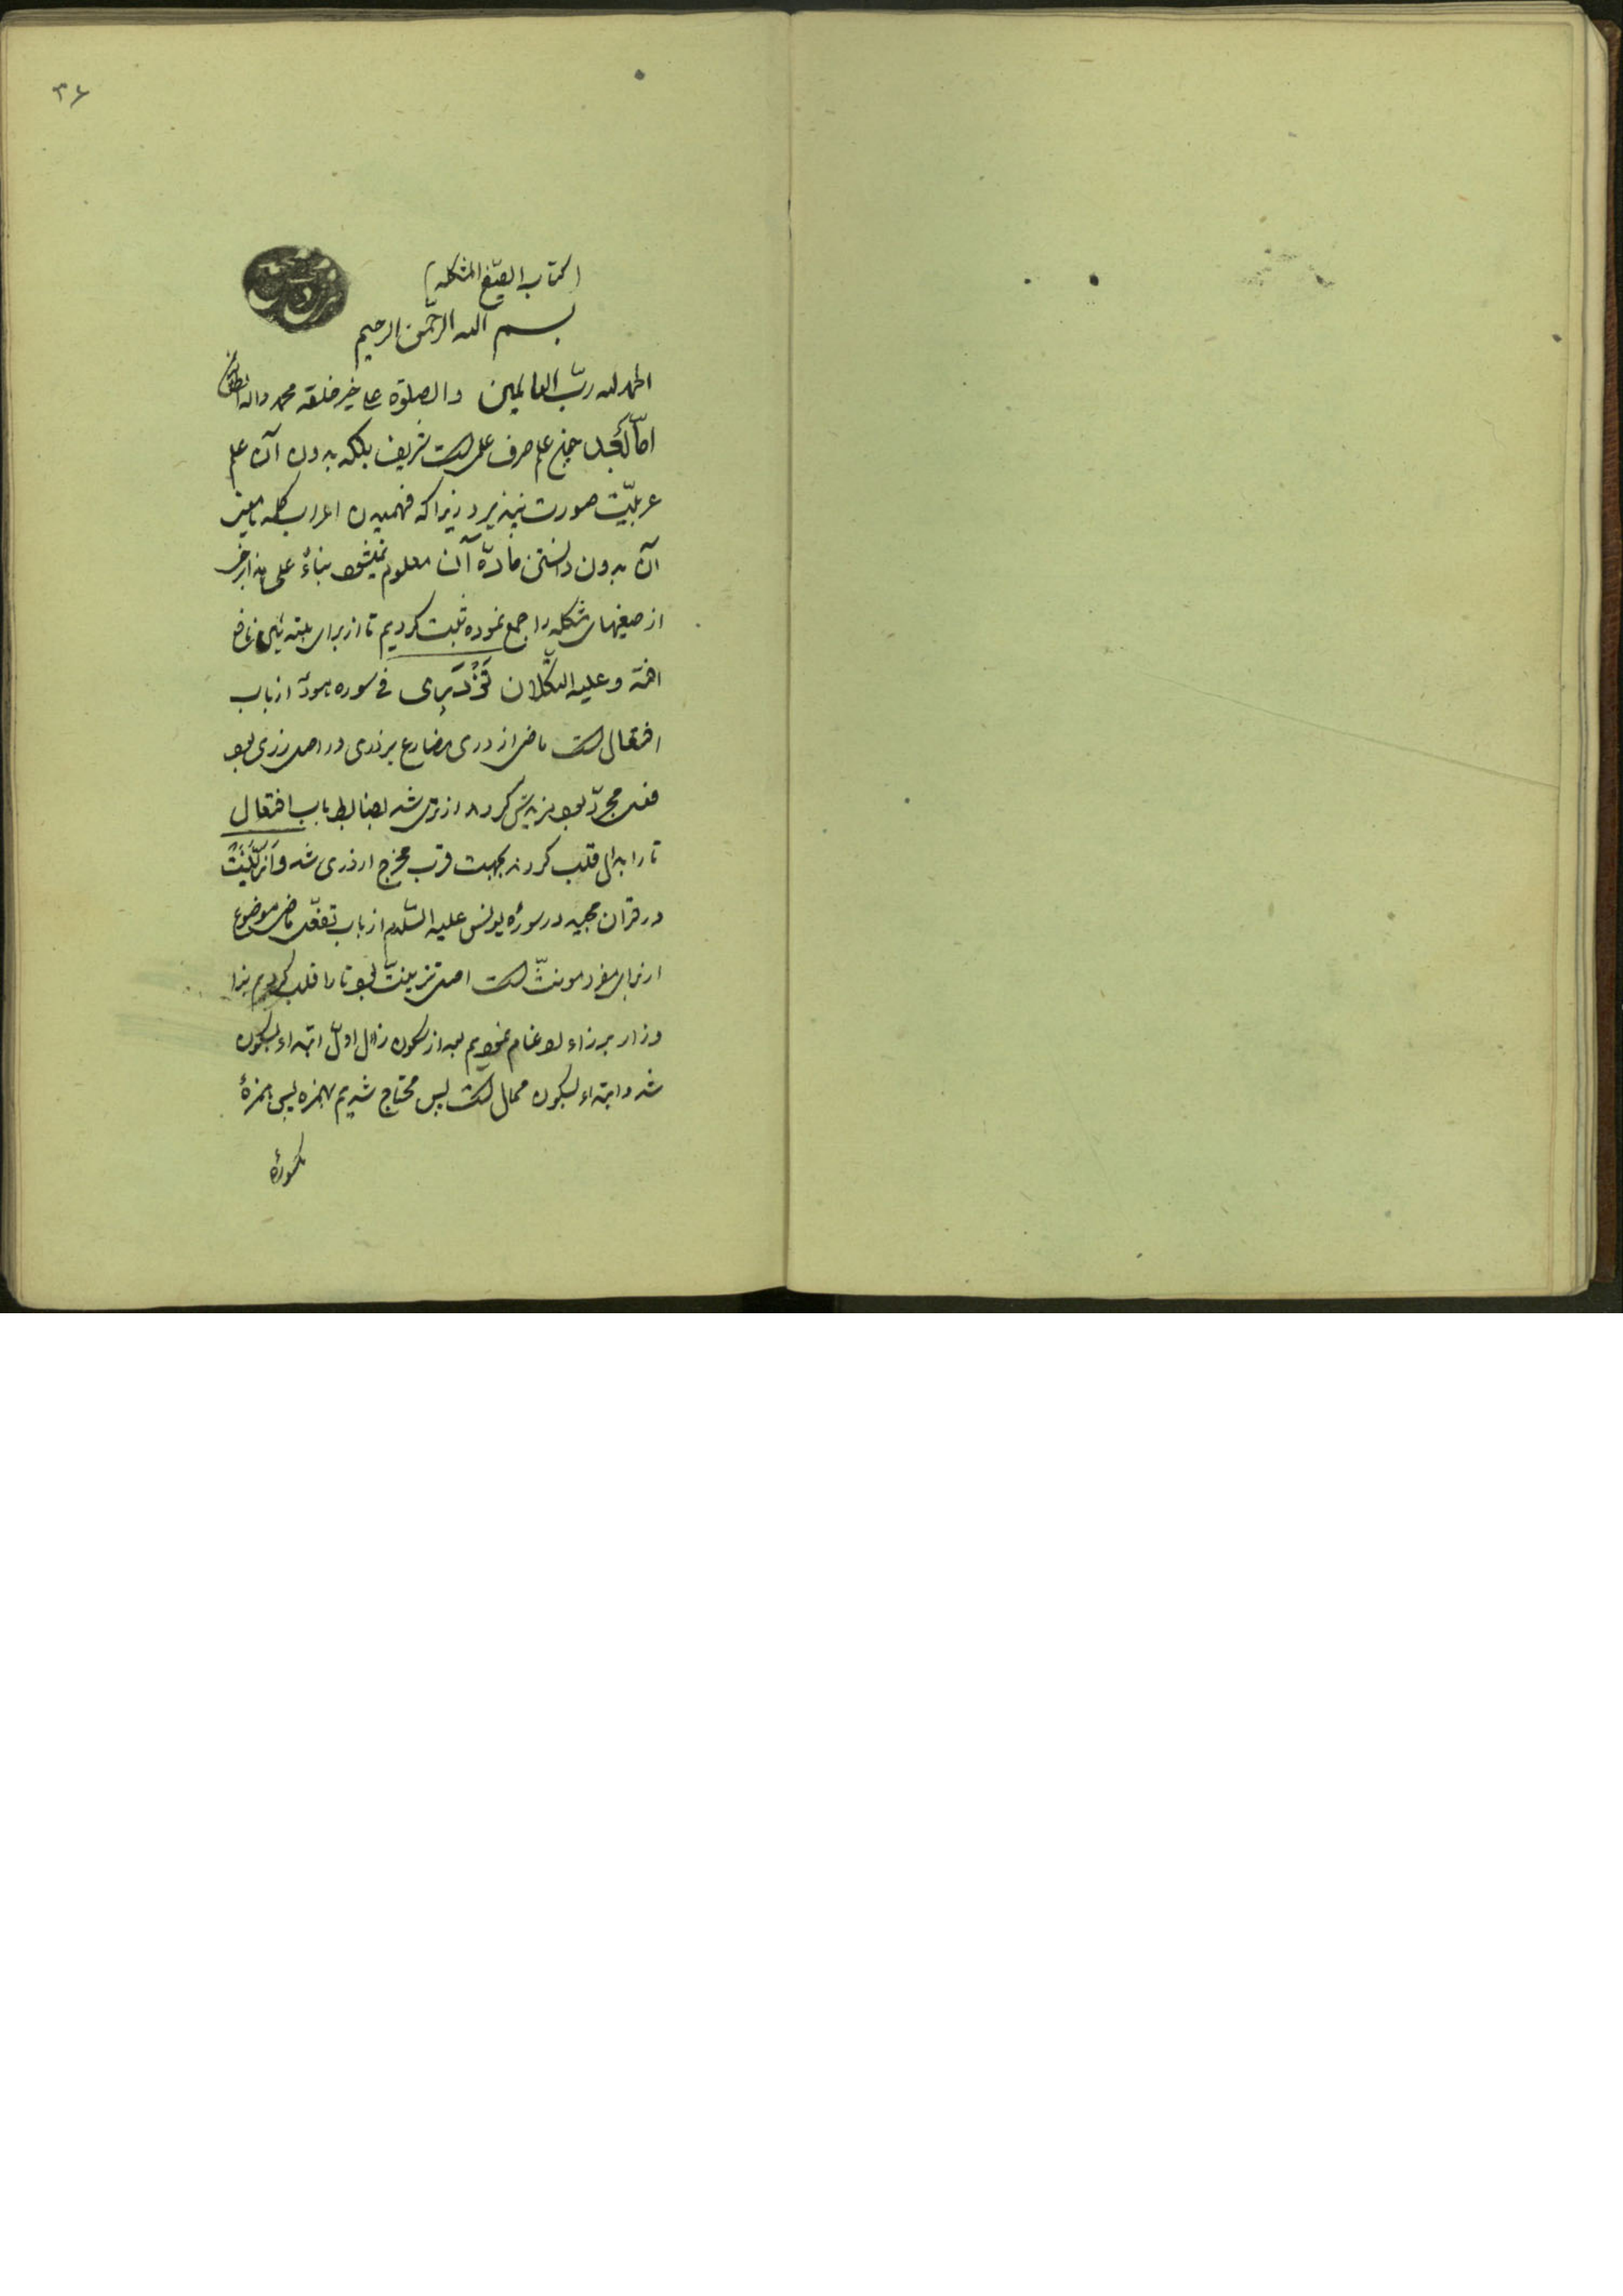 ۳۶
(کتاب الصیغ المشکله)
بسم الله الرحمن الرحیم
الحمد لله ربّ العالمین والصلوة علی خیر خلقه محمد واله
امّا بَعد چنین علم صرف علمی است شریف بلکه بدون آن علم
عربیّت صورت نپذیرد زیرا که فهمیدن اعراب کلمه یا معنی
آن بدون دانستن مادّه آن معلوم نمیشود بناءً علی هذا برخی
از صیغهای مشکله را جمع نموده ثبت کردیم تا از برای مبتدئین نافع
افتد وعلیه التکلان تَزْدَرِی فی سوره هود از باب
افتعال است ماضی ازدری مضارع یزدری در اصل زری بود
فعل مجرّد بود مزیدش کردند ازتری شد بضابط باب افتعال
تا را بدال قلب کردند بجهت قرب مخرج ازدری شد وَازَّیَّنَتْ
در قرآن مجید در سورهٔ یونس علیه السّلام از باب تفعّل ماضی موضوع
از برای مفرد مونثّ است اصل تزینتّ بود تا را قلب کردیم بزا
وزا را بر زاء ادغام نمودیم بعد از سکون زاء اوّل ابتداء بسکون
شد وابتداء بسکون محال است پس محتاج شدیم بهمزه پس همزهٔ
مکسورهٔ